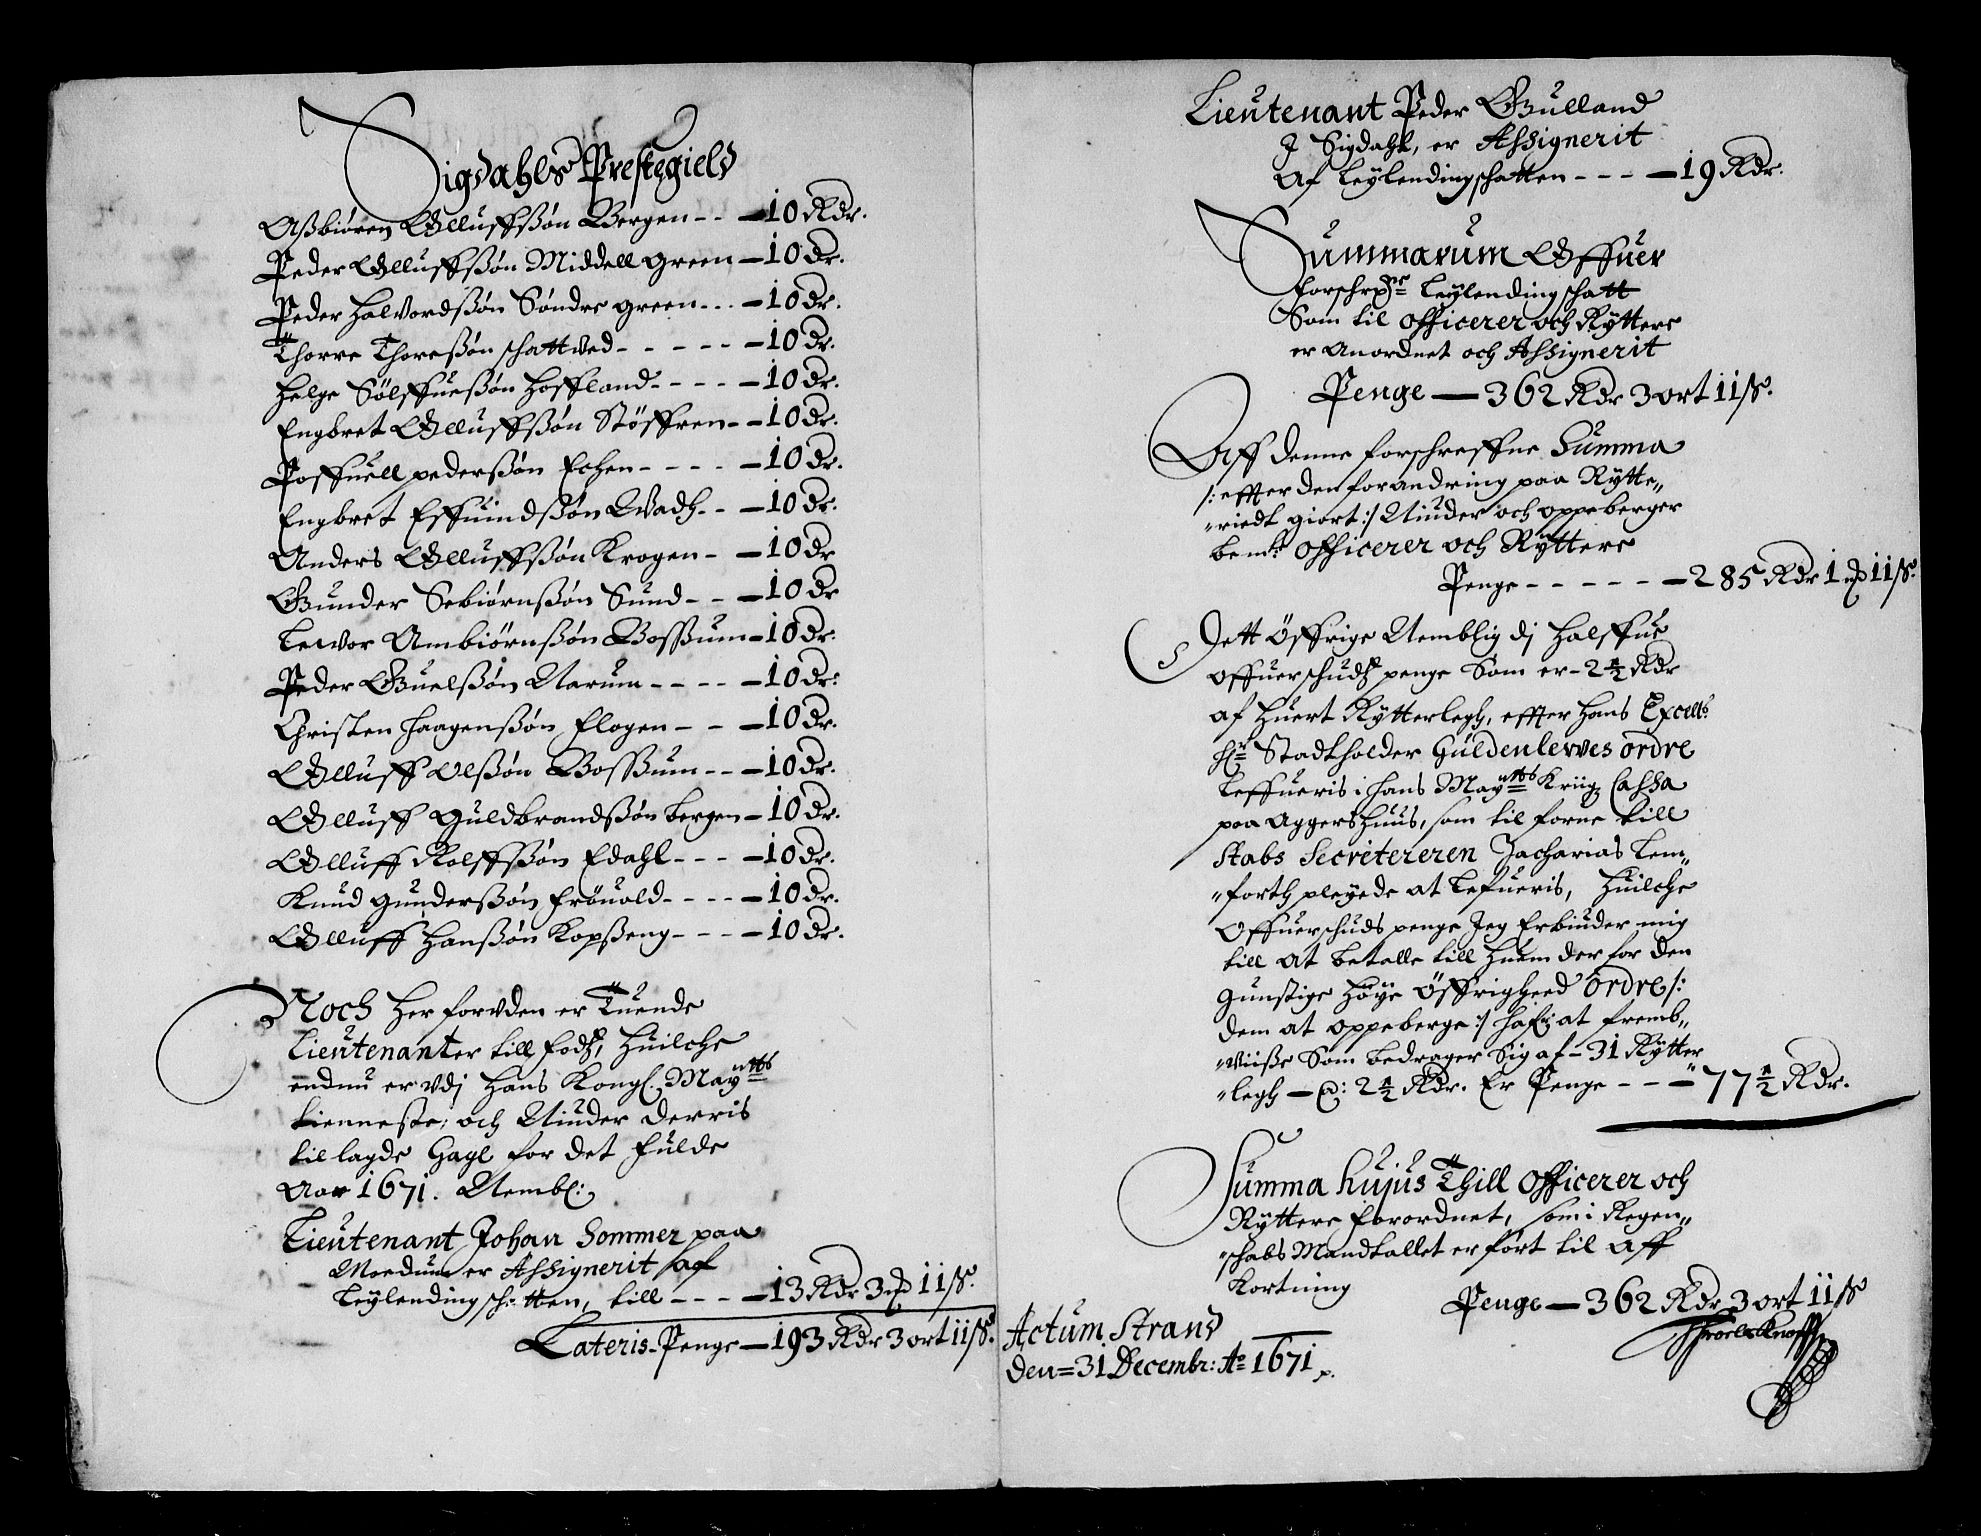 Sigdahls Prestegield
Aßbiøren Olluffßøn Bergen - - - 10 Rdr.
Peder Olluffßøn Middell green - 10 dr.
Peder Halvordßøn Søndre green - - - 10 dr.
Thorre Thoreßøn schattved - - - - - 10 dr.
Helge Sølffueßøn Hoffland - - - - 10 dr.
Engbret Olluffßøn Støffren - - 10 dr.
Poffuell pederßøn Echen - - - - - 10 dr.
Engbret Effuindßøn Wadh - - - 10 dr.
Anders Olluffßøn Krogen - - 10 dr
Gunder Sebiørnßøn Sund - - - 10 dr
Lewor Ambiørnßøn Boßum - 10 dr.
Peder Guelßøn Narum - - - - - 10 dr:
Christen Haagenßøn flogen - - - 10 dr.
Olluff Olßøn Boßum - - - 10 dr.
Olluff Guldbrandßøn bergen - 10 dr.
Olluff Rolffßøn Edahl - - - - 10 dr.
Knud gunderßøn frøuold - - - - - 10 dr.
Olluff Hanßøn Kopßeng - - - - 10 dr.
Noch her forvden er Tuende
Lieutenanter till fodß, Huilche
endnu er vdj Hans Kongl. Maytts
tienneste, och Niuder derris
tillagde Gage for det fulde
Aar 1671. Nembl:
Lieutenant Johan Sommer paa
Moedum er Assignerit af
Leylendingschatten, till - - - - 13 Rdr 3 mk 11 ß.
Lateris - Penge - 193 Rdr 3 ort 11 ß.
Lieutenant Peder Gulland
J Sigdahl, er Assignerit
Af Leylendingschatten - - - - 19 Rdr.
Summarum Offuer
forschrne Leylendingschatt
Som til officerer och Ryttere
er anordnet och Assignerit
Penge - 362 Rdr 3 ort 11 ß.
Aff denne forschreffne Summa
/: effter den forandring paa Rytte„
„riedt giort :/ Niuder och oppeberger
bemte officerer och Ryttere
Penge - - - - - - 285 Rdr 1 mk 11 ß.
Dett Öffrige Nemblig dj Halffue
offuerschudß penge Som er - 2 1/2 Rdr
af Huert Rytterlegh, effter Hans Excells
Hr Stadtholder Güldenlewes ordre
Leffueris i Hans Maytts Kriigs Cassa
paa Aggershuus, som til forne till
Stabs Secretereren Zacharias Lem„
„forth pleyede at Lefueris, Huilche
Offuerschuds penge Jeg Erbiuder mig
till at betalle till Huem der for den
gunstige Höye Öffrigheed ordre /:
dem at oppeberge :/ hafr at fremb„
„viiße Som bedrager Sig af - 31 Rytter
„legh - a: 2 1/2 Rdr. Er Penge - - - 77 1/2 Rdr.
Summa hujus Thill officerer och
Ryttere forordnet, som i Regen„
„schabs Mandtallet er fört til Aff
Kortning
Penge - 362 Rdr 3 ort 11 ß
Actum Strand
den = 31 Decembr: Ao 1671
Throels Knoff